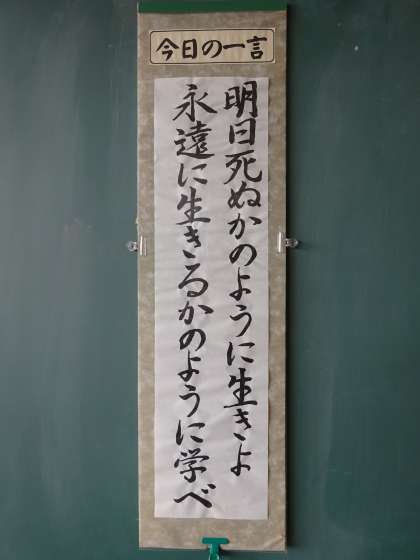 今日の一言
明日死ぬかのように生きよ
永遠に生きるかのように学べ